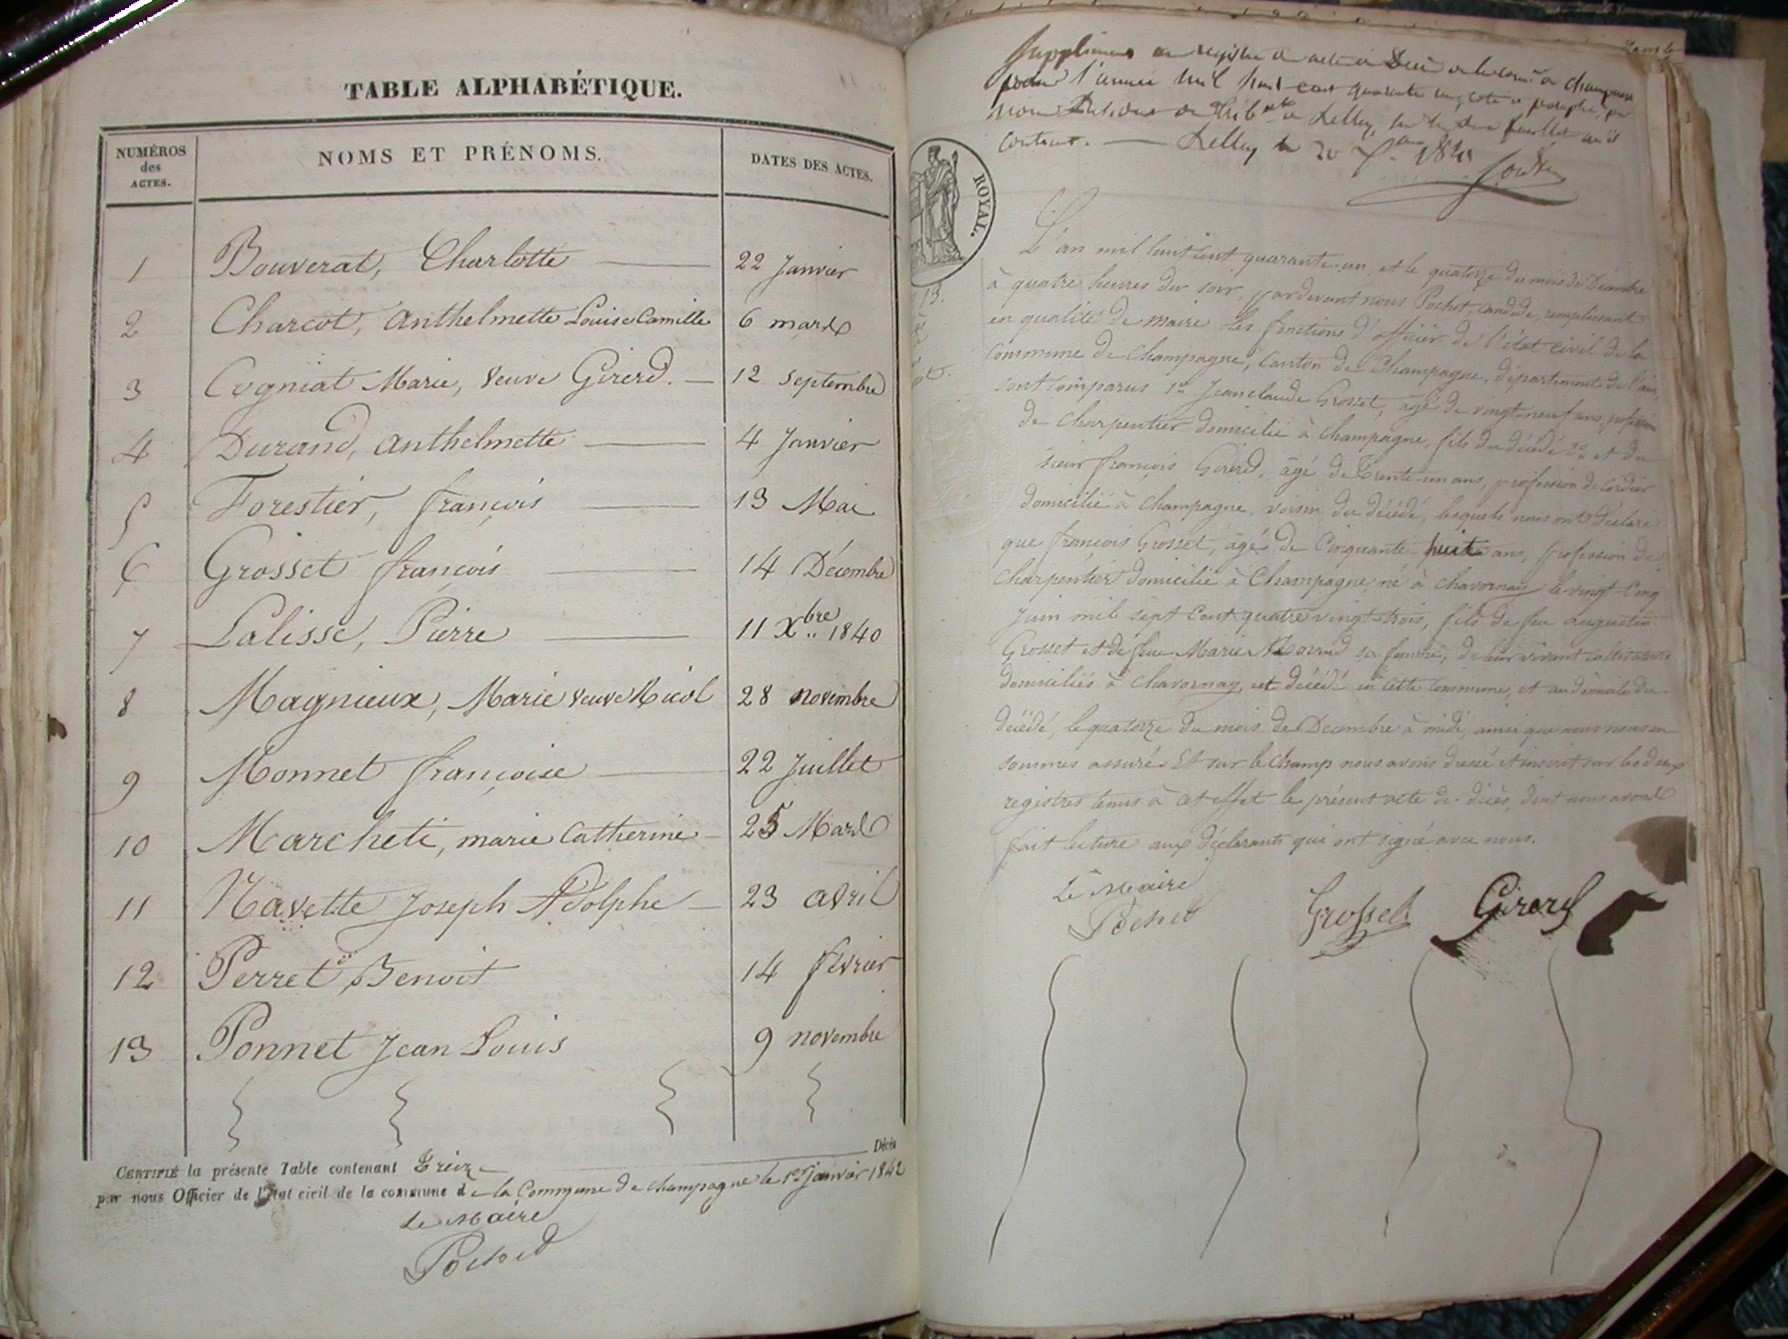 TABLE ALPHABÉTIQUE.
NUMÉROS des ACTES.
NOMS ET PRÉNOMS.
DATES DES ACTES.
1 Bouverat, Charlotte 22 Janvier
2 Charcot, Anthelmette Louise Camille 6 mars
3 Cogniat Marie, veuve Girerd. 12 Septembre
4 Durand, Anthelmette 4 Janvier
5 Forestier, françois 13 Mai
6 Grosset françois 14 Décembre
7 Lalisse, Pierre 11 Xbre 1840
8 Magnieux, Marie veuve Nicol 28 novembre
9 Monnet françoise 22 Juillet
10 Marcheti, marie Catherine 25 Mars
11 Navette Joseph Adolphe 23 avril
12 Perret Benoit 14 février
13 Ponnet Jean Louis 9 novembre
CERTIFIÉ la présente Table contenant Treize Décès
par nous Officier de l'état civil de la commune de la Commune de Champagne le 1er Janvier 1842
Le Maire
Pochet
Supplément au registre
pour l'année mil huit cent quarante un, coté et paraphé par
nous
contient. 1841
ROYAL.
L'an mil huit cent quarante-un, et le quatorze du mois de Décembre
à quatre heures du soir, pardevant nous Pochet, candide, remplissant
en qualité de maire les fonctions d'officier de l'état civil de la
Commune de Champagne, Canton de Champagne, département de l'ain,
sont comparus 1o Jean claude Grosset, âgé de vingt-neuf ans, profession
de Charpentier domicilié à Champagne, fils du décédé 2o et du
sieur françois Girerd, âgé de Trente-un ans, profession de Cordier
domicilié à Champagne, voisin du décédé, lesquels nous ont déclaré
que françois Grosset, âgé de Cinquante huit ans, profession de
Charpentier domicilié à Champagne, né à Chavornay le vingt Cinq
Juin mil sept Cent quatre vingt trois, fils de feu augustin
Grosset et de feue Marie sa femme, de leur vivant
domiciliés à Chavornay, est décédé en cette Commune, et au domicile du
décédé, le quatorze du mois de Decembre à midi, ainsi que nous nous en
sommes assuré. Et sur le Champ nous avons dressé et inscrit sur les deux
registres tenus à cet effet le présent acte de décès, dont nous avons
fait lecture aux déclarants qui ont signé avec nous.
Le Maire
Pochet Grosset Girerd